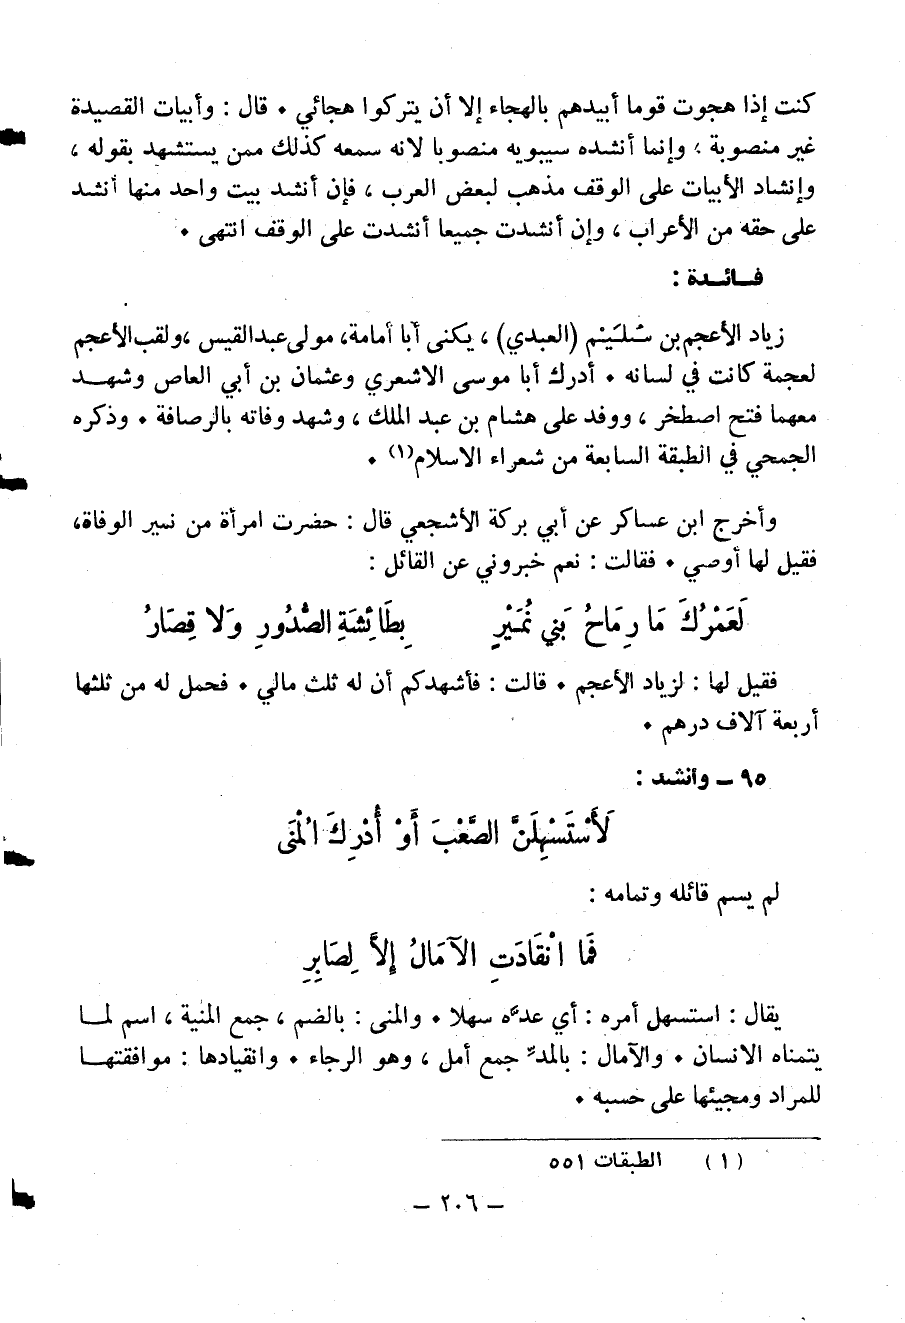 كنت إذا هجوت قوما أبيدهم بالهجاء إلا أن يتركوا هجائي • قال : وأبيات القصيدة
غير منصوبة ، وإنما أنشده سيبويه منصوبا لانه سمعه كذلك ممن يستشهد بقوله ،
وإنشاد الأبيات على الوقف مذهب لبعض العرب ، فإن أنشد بيت واحد منها أنشد
على حقه من الأعراب ، وإن أنشدت جميعا أنشدت على الوقف انتهى •
فــائــدة :
زياد الأعجم بن سُلَيْم (العبدي) ، يكنى أبا أمامة، مولى عبد القيس ،ولقب الأعجم
لعجمة كانت في لسانه • أدرك أبا موسى الاشعري وعثمان بن أبي العاص وشهــد
معهما فتح اصطخر ، ووفد على هشام بن عبد الملك ، وشهد وفاته بالرصافة • وذكره
الجمحي في الطبقة السابعة من شعراء الاسلام(١) •
وأخرج ابن عساكر عن أبي بركة الأشجعي قال : حضرت امرأة من نمير الوفاة،
فقيل لها أوصي • فقالت : نعم خبروني عن القائل :
لَعَمْرُكَ مَا رِمَاحُ بَني نُمَيْرٍ بِطَائِشَةِ الصُّدُورِ وَلا قِصَارُ
فقيل لها : لزياد الأعجم • قالت : فأشهدكم أن له ثلث مالي • فحمل له من ثلثها
أربعة آلاف درهم •
٩٥ ـ وأنشد :
لَأَسْتَسْهِلَنَّ الصَّعْبَ أَوْ أُدْرِكَ الْمُنَى
لم يسم قائله وتمامه :
فَمَا انْقَادَتِ الآمَالُ إِلاَّ لِصَابِرِ
يقال : استسهل أمره : أي عدّه سهلا • والمنى : بالضم ، جمع المنية ، اسم لمــا
يتمناه الانسان • والآمال : بالمدّ جمع أمل ، وهو الرجاء • وانقيادها : موافقتهــا
للمراد ومجيئها على حسبه •
(١) الطبقات ٥٥١
– ٢٠٦ –